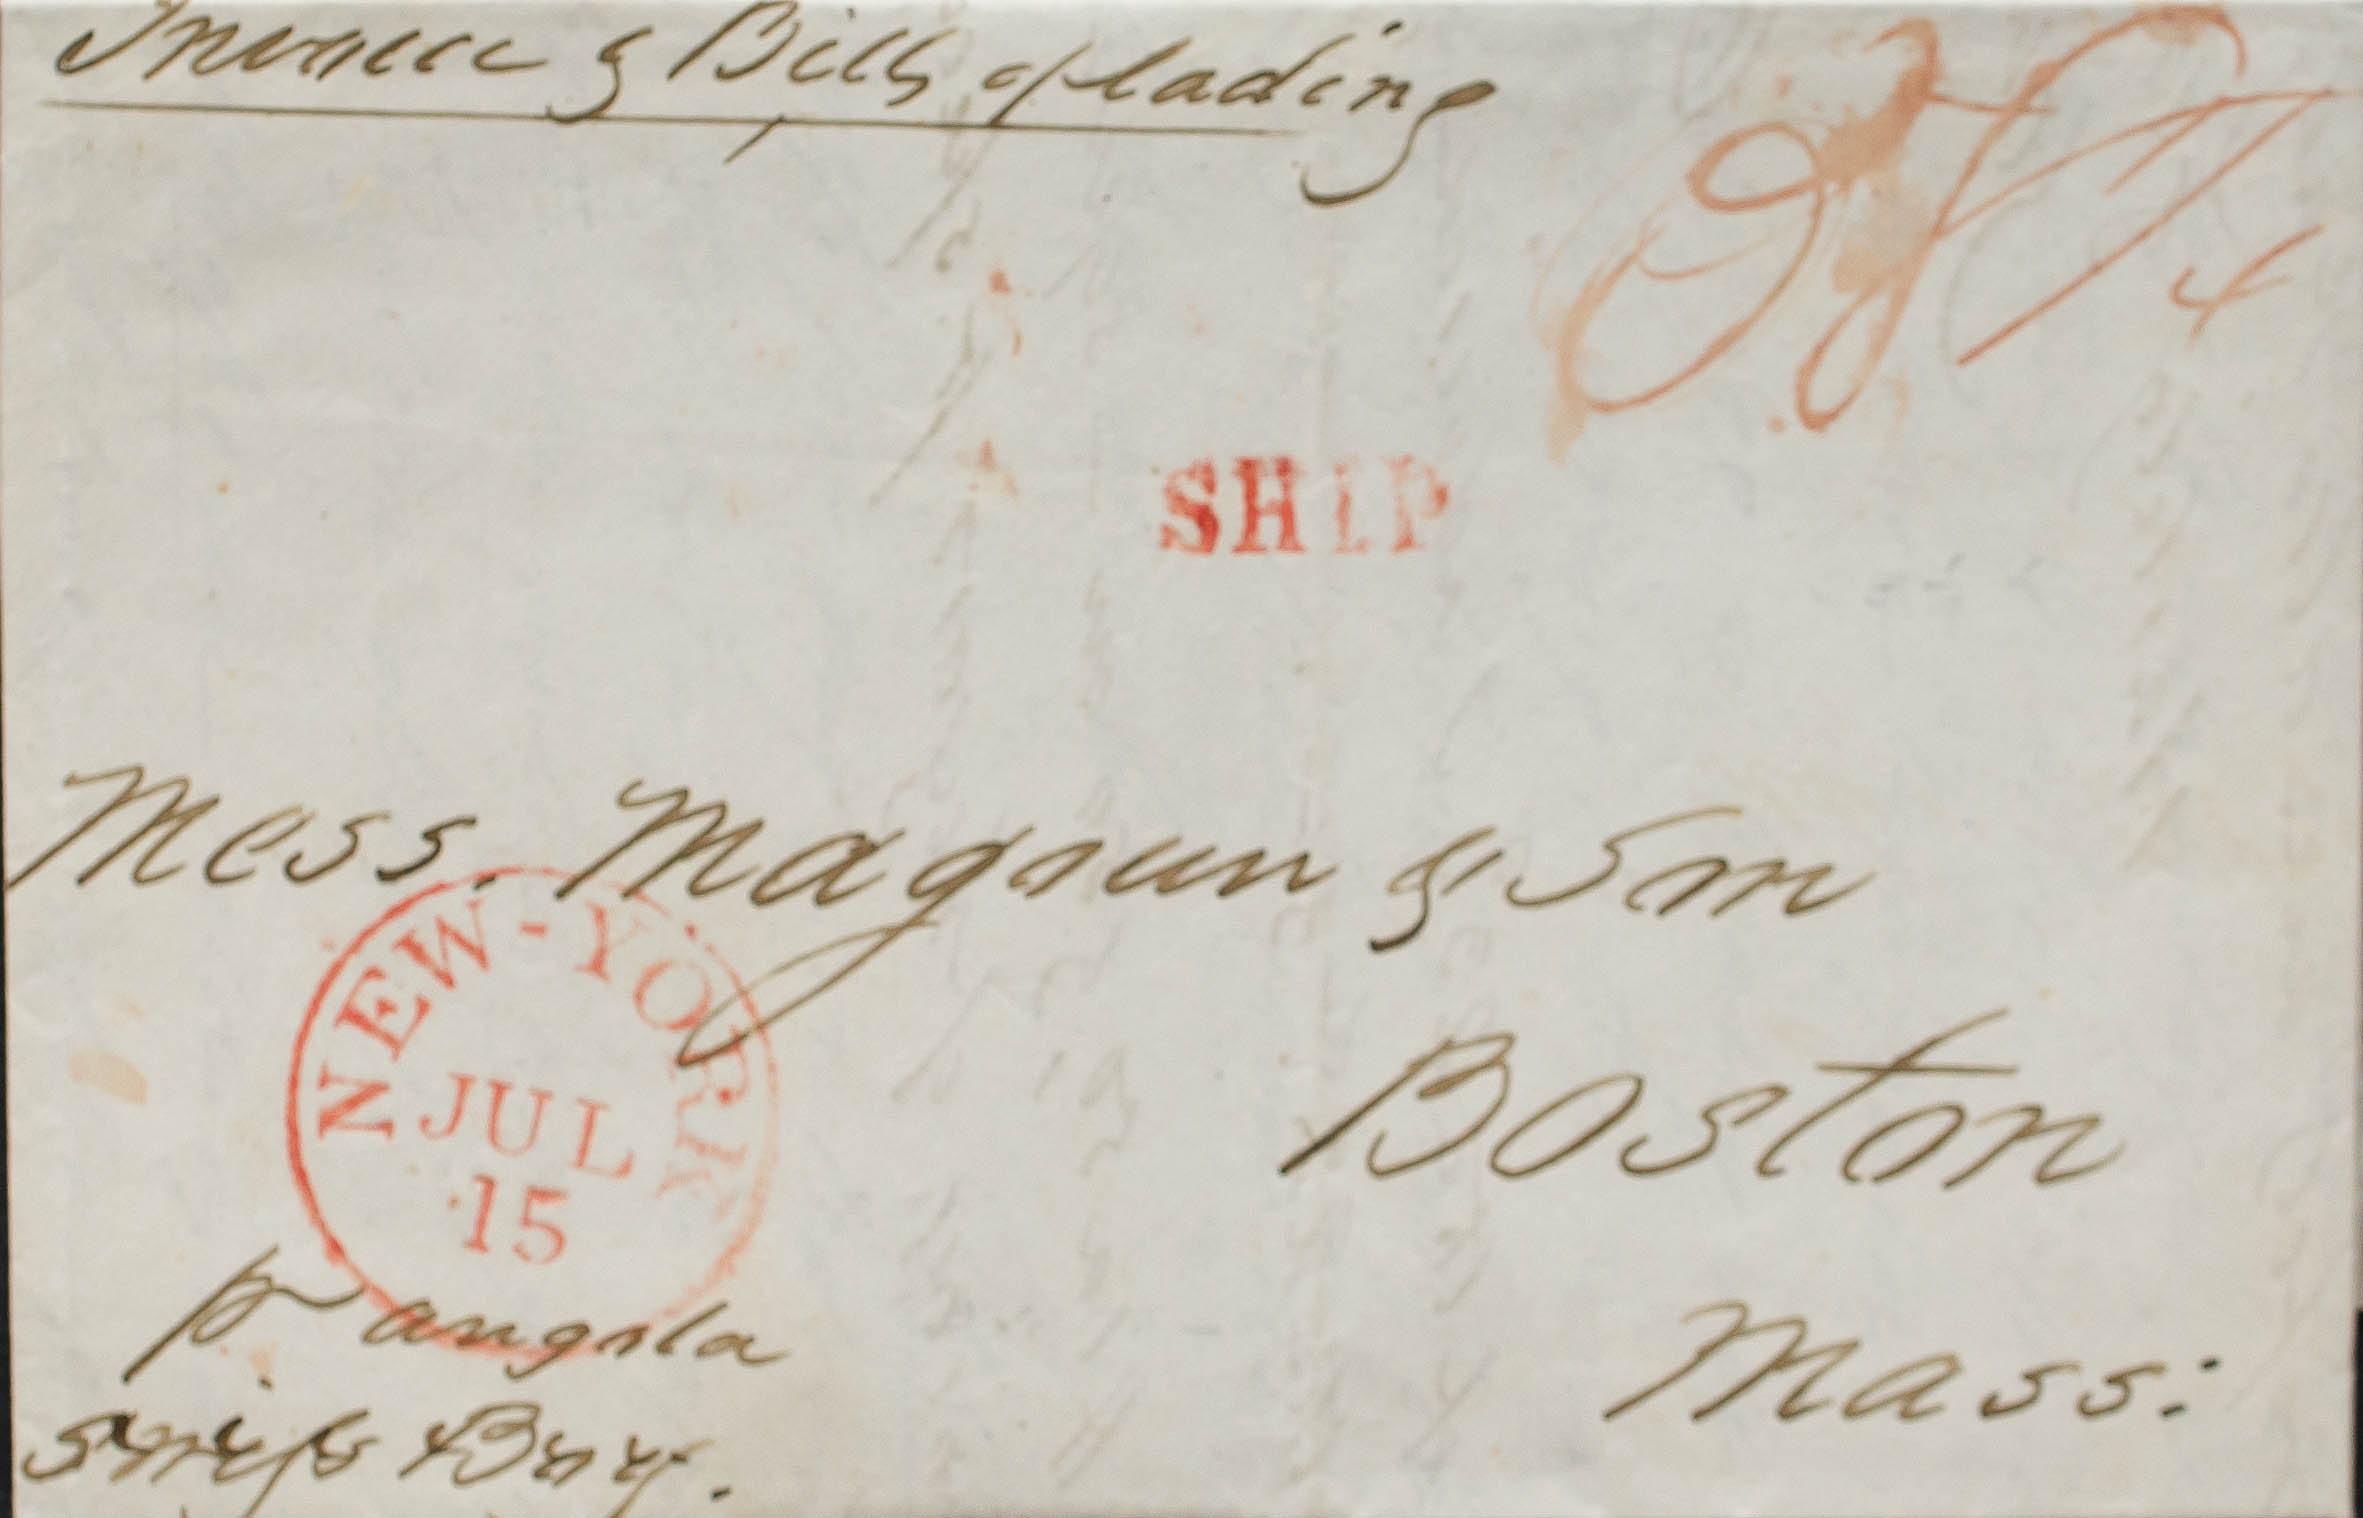 Invoice & Bills of lading
SHIP
Mess. Magoun & Son
NEW-YORK
JUL
15
Boston
p angola
Mass: